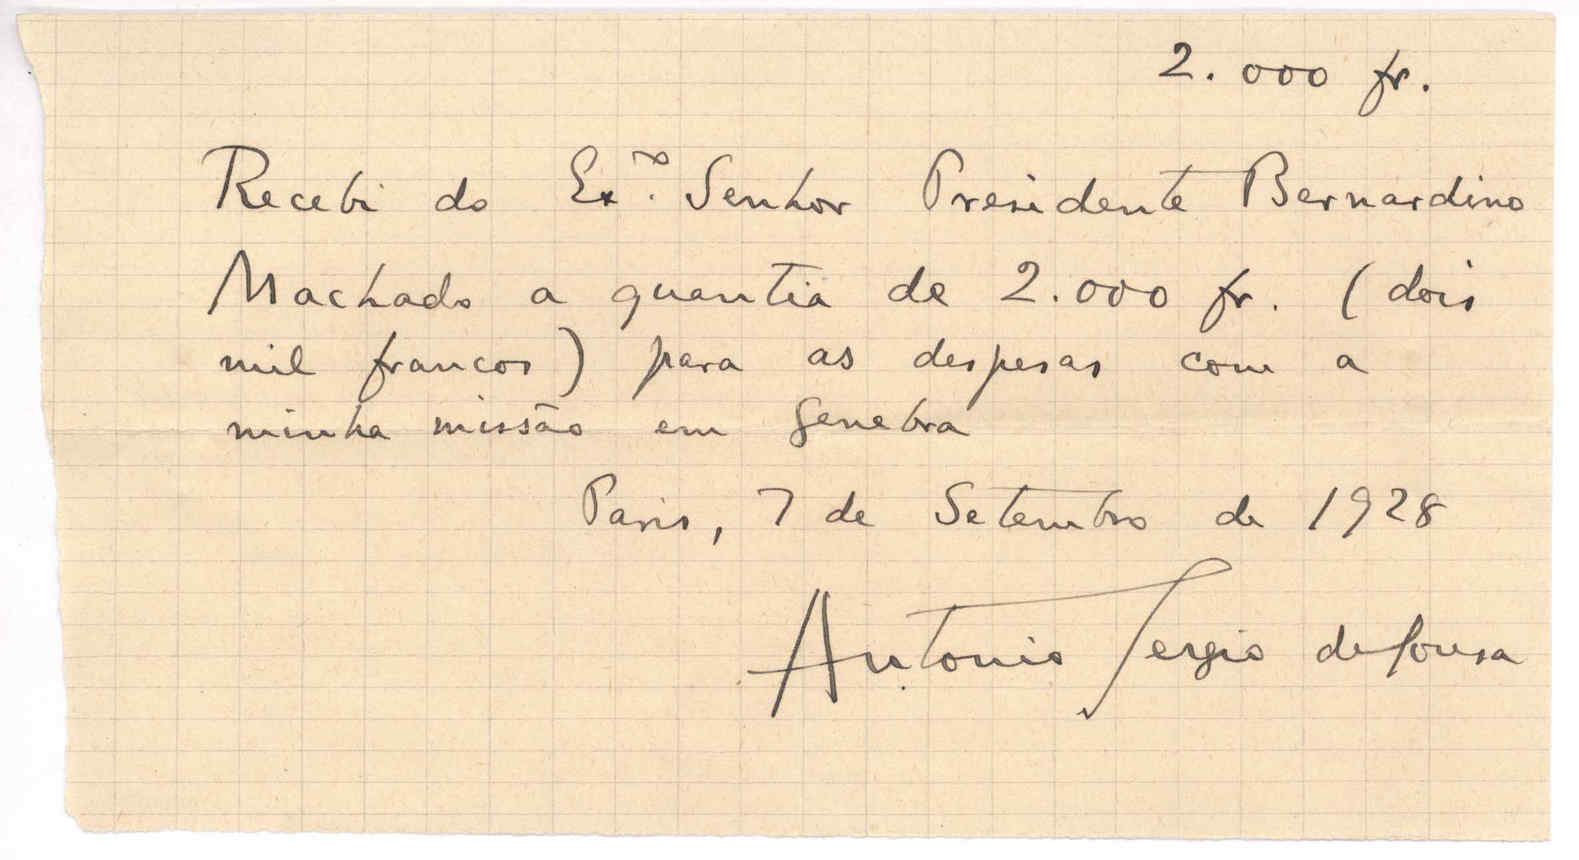 2.000 fr.
Recebi do Ex.º Senhor Presidente Bernardino
Machado a quantia de 2.000 fr. (dois
mil francos) para as despesas com a
minha missão em Genebra
Paris, 7 de Setembro de 1928
Antonio Sergio de Sousa